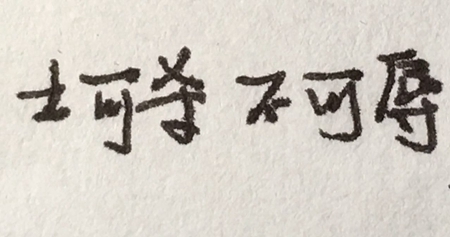 士可杀 不可辱